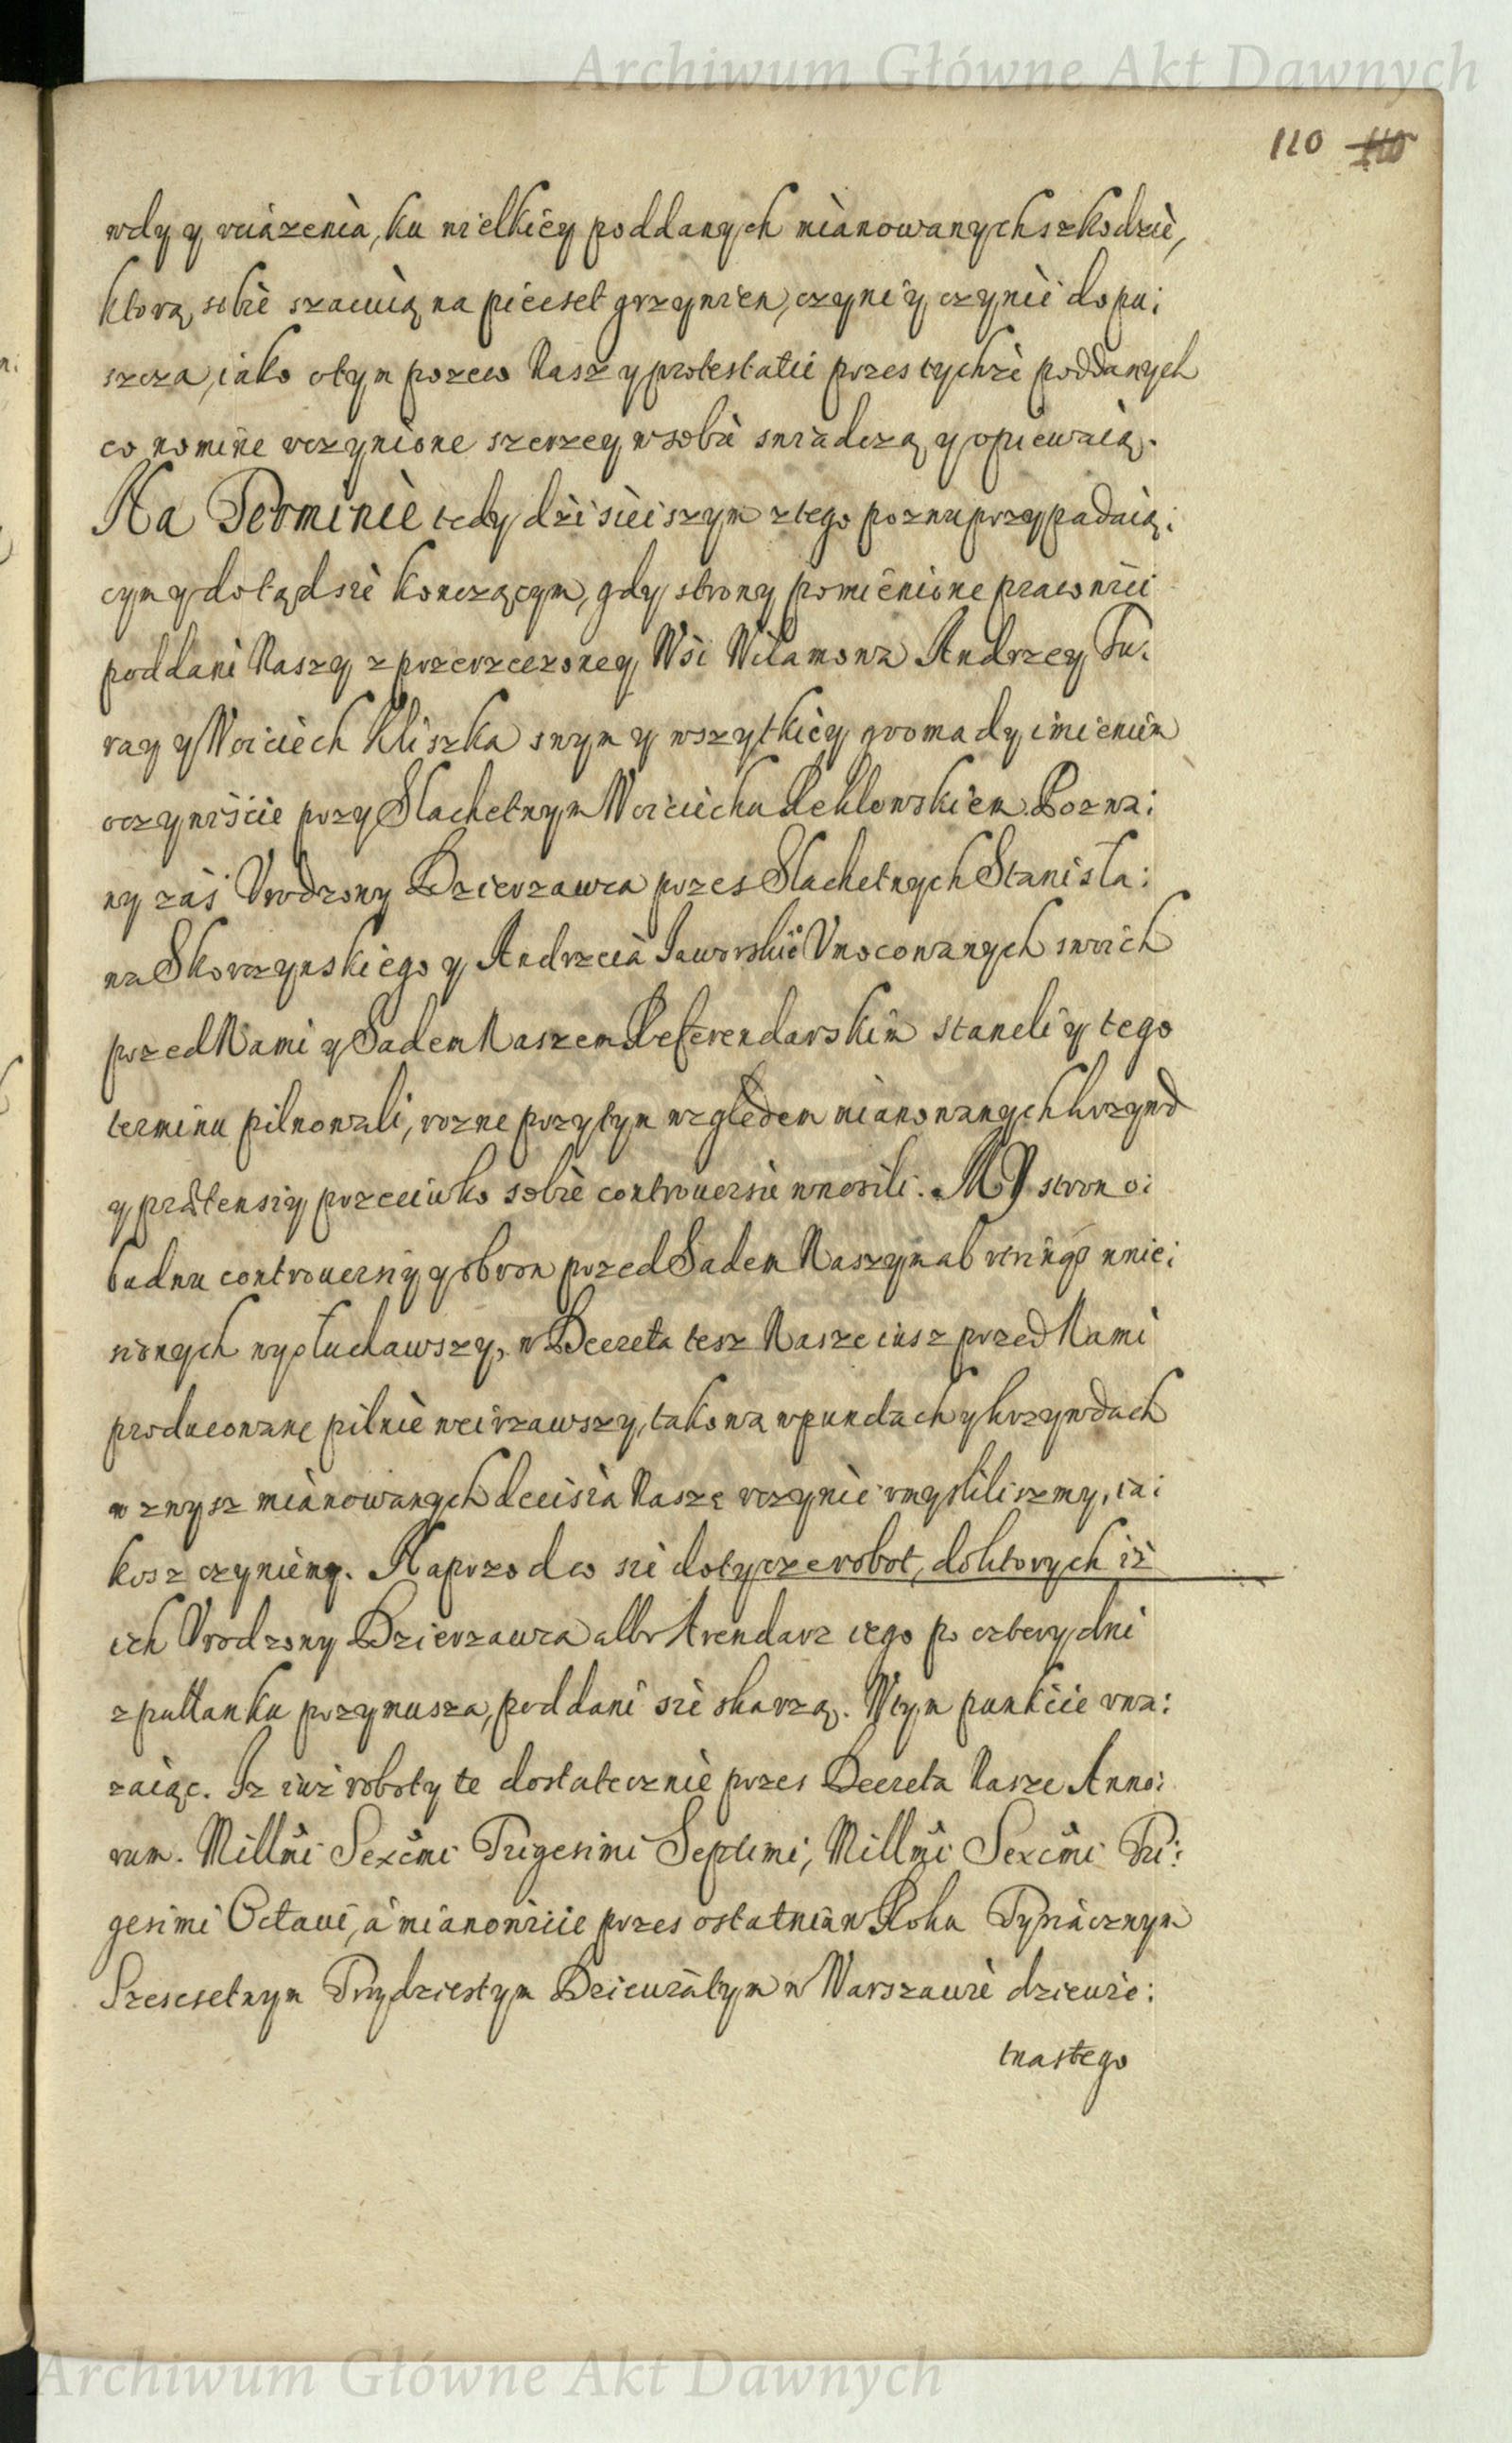 Archiwum Główne Akt Dawnych
110 110
wdy y vciązenia, ku wielkiey poddanych mianowanych szkodzie,
ktorą sobie szacuią na piecset grzywien, czyni y czynic dopu:
szcza, iako otym pozew Nasz y protestatie przes tychze poddanych
eo nomine vczynione szerzey w sobie swiadczą y opiewaią.
Na Terminie tedy dzisieiszym z tego poznu przypadaią:
cym y dotąd sie konczącym, gdy strony pomienione prawnie i
poddani Naszy z przerzeczoney Wsi Wilamowa Andrzey Tu:
ray y Woiciech Kliszka swym y wszytkiey gromady imieniem
oczywiście przy Slachetnym Woiciechu Reklewskiem. Pozwa:
ny zaś Vrodzony Dzierzawca przes Slachetnych Stanisła:
wa Skorczynskiego y Andrzeia Jaworskie° Vmocowanych swoich
przed Nami y Sadem Naszem Referendarskim staneli y tego
terminu pilnowali, rozne przytym względem mianowanych krzywd
y praetensiy przeciwko sobie controuersie wnosili. MY stron o:
budwu controuersiy y obron przed Sadem Naszym ab vtrinque wnie:
sionych wysłuchawszy, w Decreta tesz Nasze iusz przed Nami
producowane pilnie weirzawszy, takową w punctach y krzywdach
w zwysz mianowanych decisią Naszę vczynic vmyslilismy, ia:
kosz czyniemy. Naprzod co sie dotycze robot, do ktorych iż
ich Vrodzony Dzierzawca albo Arendarz iego po cztery dni
z pułłanku przymusza, poddani sie skarzą. W tym punkcie vwa:
zaiąc. Iz iuż roboty te dostatecznie przes Decreta Nasze Anno:
rum. Millmi Sexcmi Trigesimi Septimi, Millmi Sexcmi Tri:
gesimi Octaui, a mianowicie przes ostatni w Roku Tysiącznym
Szescsetnym Trzydziestym Dziewiątym w Warszawie dziewię:
tnastego
Archiwum Główne Akt Dawnych